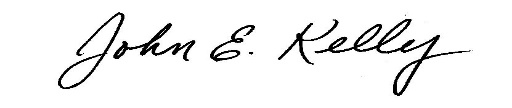 John E. Kelly